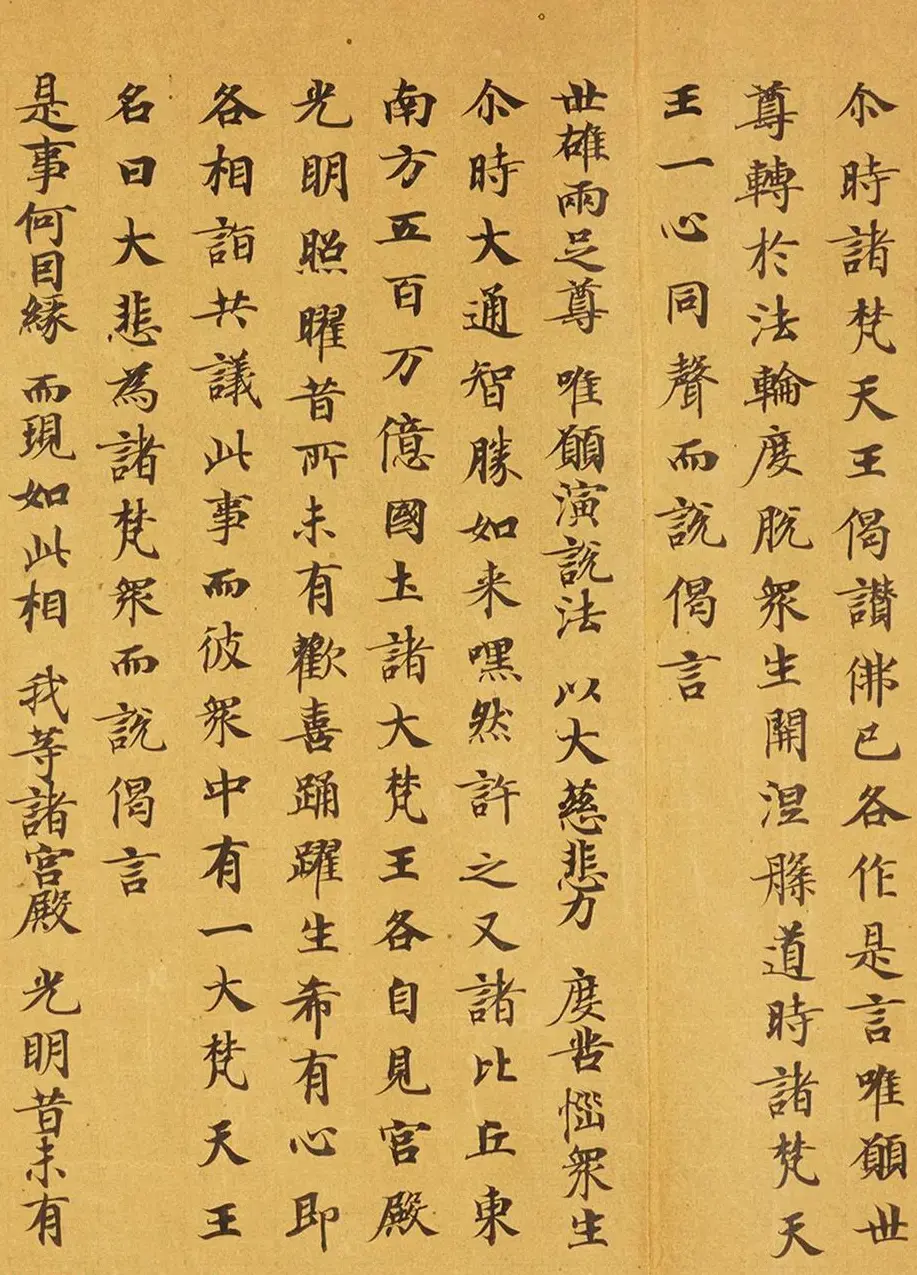 尒時諸梵天王偈讃佛已各作是言唯願世
尊轉於法輪度脫衆生開涅槃道時諸梵天
王一心同聲而說偈言
世雄兩足尊 唯願演說法 以大慈悲力 度苦惱衆生
尒時大通智勝如来嘿然許之又諸比丘東
南方五百万億國土諸大梵王各自見宮殿
光明照曜昔所未有歡喜踊躍生希有心即
各相詣共議此事而彼衆中有一大梵天王
名曰大悲為諸梵衆而說偈言
是事何因緣 而現如此相 我等諸宮殿 光明昔未有